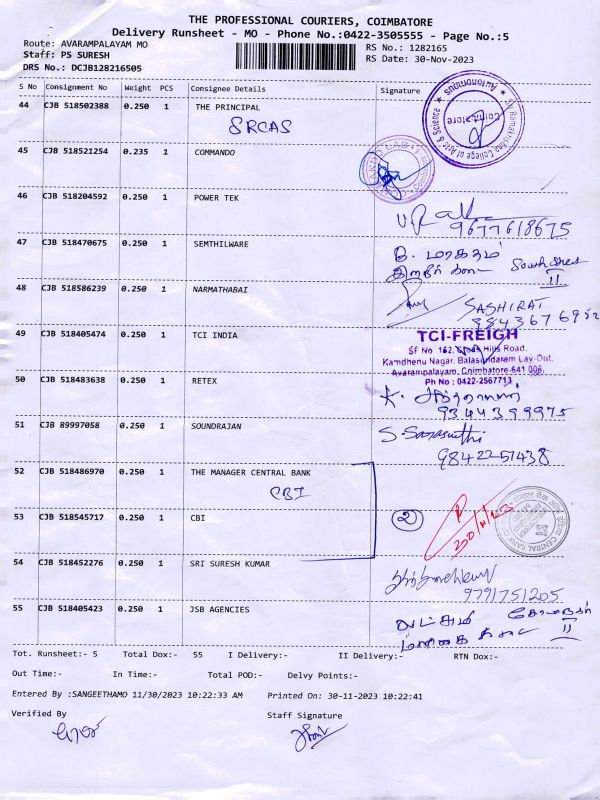 THE PROFESSIONAL COURIERS, COIMBATORE
Delivery Runsheet - MO - Phone No.:0422-3505555 - Page No.:5
Route: AVARAMPALAYAM MO RS No.: 1282165
Staff: PS SURESH RS Date: 30-Nov-2023
DRS No.: DCJB128216505
S No Consignment No Weight PCS Consignee Details Signature
44 CJB 518502388 0.250 1 THE PRINCIPAL
SRCAS
Sri Ramakrishna College of Arts & Science * Autonomous *
Coimbatore
45 CJB 518521254 0.235 1 COMMANDO
46 CJB 518204592 0.250 1 POWER TEK
9677618675
47 CJB 518470675 0.250 1 SEMTHILWARE
South Street
II
48 CJB 518586239 0.250 1 NARMATHABAI
SASHIRAI
49 CJB 518405474 0.250 1 TCI INDIA
TCI-FREIGH
SF No 162, Cross Hills Road,
Kamdhenu Nagar, Balasundaram Lay-Out,
Avarampalayam, Coimbatore-641 006.
Ph No : 0422-2567713
50 CJB 518483638 0.250 1 RETEX
9344399975
51 CJB 89997058 0.250 1 SOUNDRAJAN
S. Saraswathi
9842251438
52 CJB 518486970 0.250 1 THE MANAGER CENTRAL BANK
CBI
53 CJB 518545717 0.250 1 CBI
2
30/11/23
54 CJB 518452276 0.250 1 SRI SURESH KUMAR
9791751205
55 CJB 518405423 0.250 1 JSB AGENCIES
II
Tot. Runsheet:- 5 Total Dox:- 55 I Delivery:- II Delivery:- RTN Dox:-
Out Time:- In Time:- Total POD:- Delvy Points:-
Entered By :SANGEETHAMO 11/30/2023 10:22:33 AM Printed On: 30-11-2023 10:22:41
Verified By Staff Signature